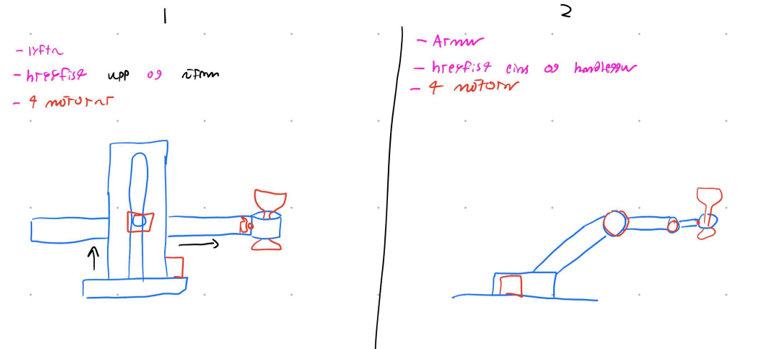 1
- lyfta
- hreyfist upp og
- 4 mótorar
2
- Armur
- hreyfist eins og handleggur
- 4 mótorar